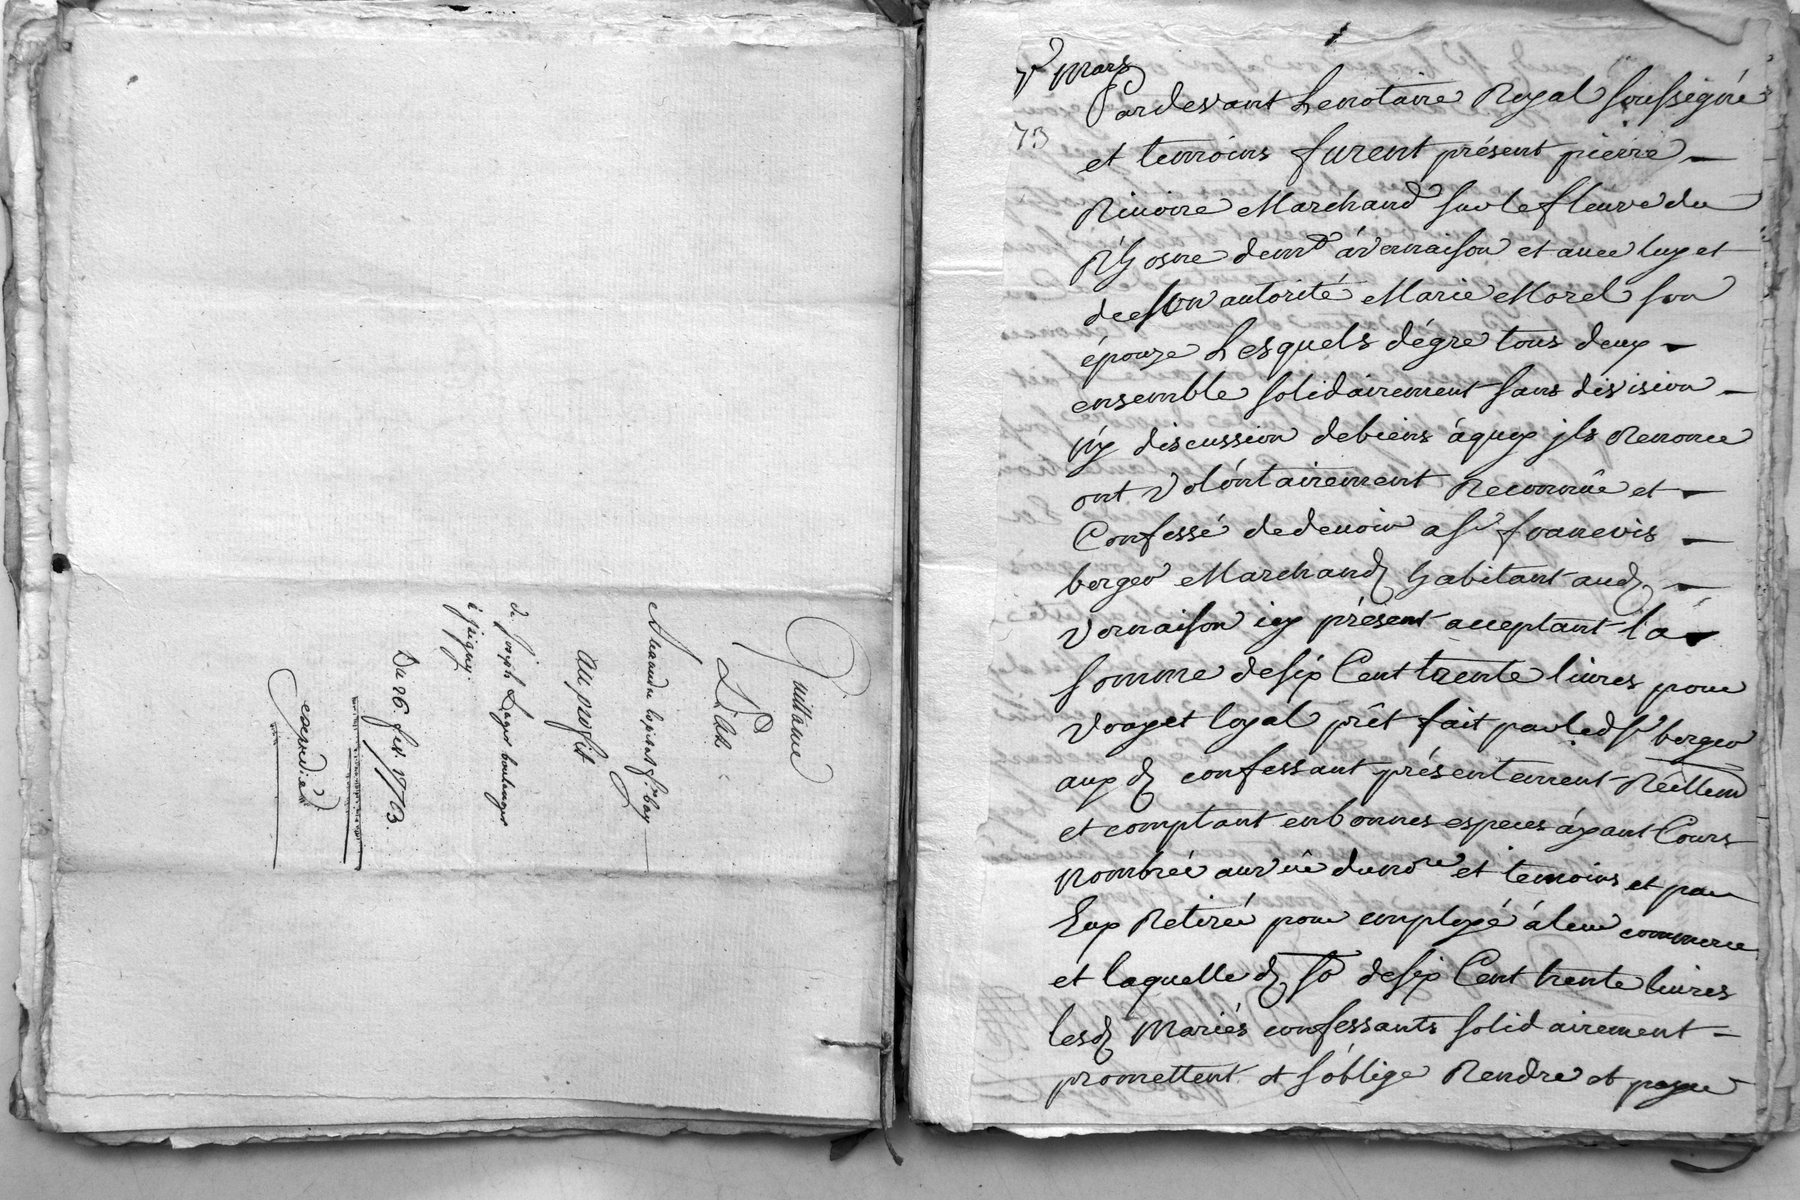 Guillaume
Lad.
Alexandre lespinas fr. bey
Au profit
de Joseph Lager boulanger
à jrigny
Du 26. fev. 1763.
expedié
1r mars
73
Pardevant Lenotaire Royal soussigné
et temoins furent présent pierre
Riuoire Marchand sur le fleuve du
Rhosne demt à vernaison et auec luy et
de son autorité Marie Morel son
épouze Lesquels dégré tous deux
ensemble solidairement sans division
ny discussion debiens áquoy jls Renonce
ont volóntairement Reconnûe et
Confessé dedeuoir a Sr francois
berger Marchand habitant aud
vernaison icy présent acceptant la
somme desix Cent trente liures pour
vray et loyal prêt fait par led Sr berger
aux d confessant présentement Réellemt
et comptant enbonnes especes áyant Cours
Nombrée aux vûe dunore et temoins et par
Eux Retirée pour employé áleur commerce
et laquelle d so desix Cent trente liures
lesd Mariés confessants solidairement
promettent et s'oblige Rendre et payer